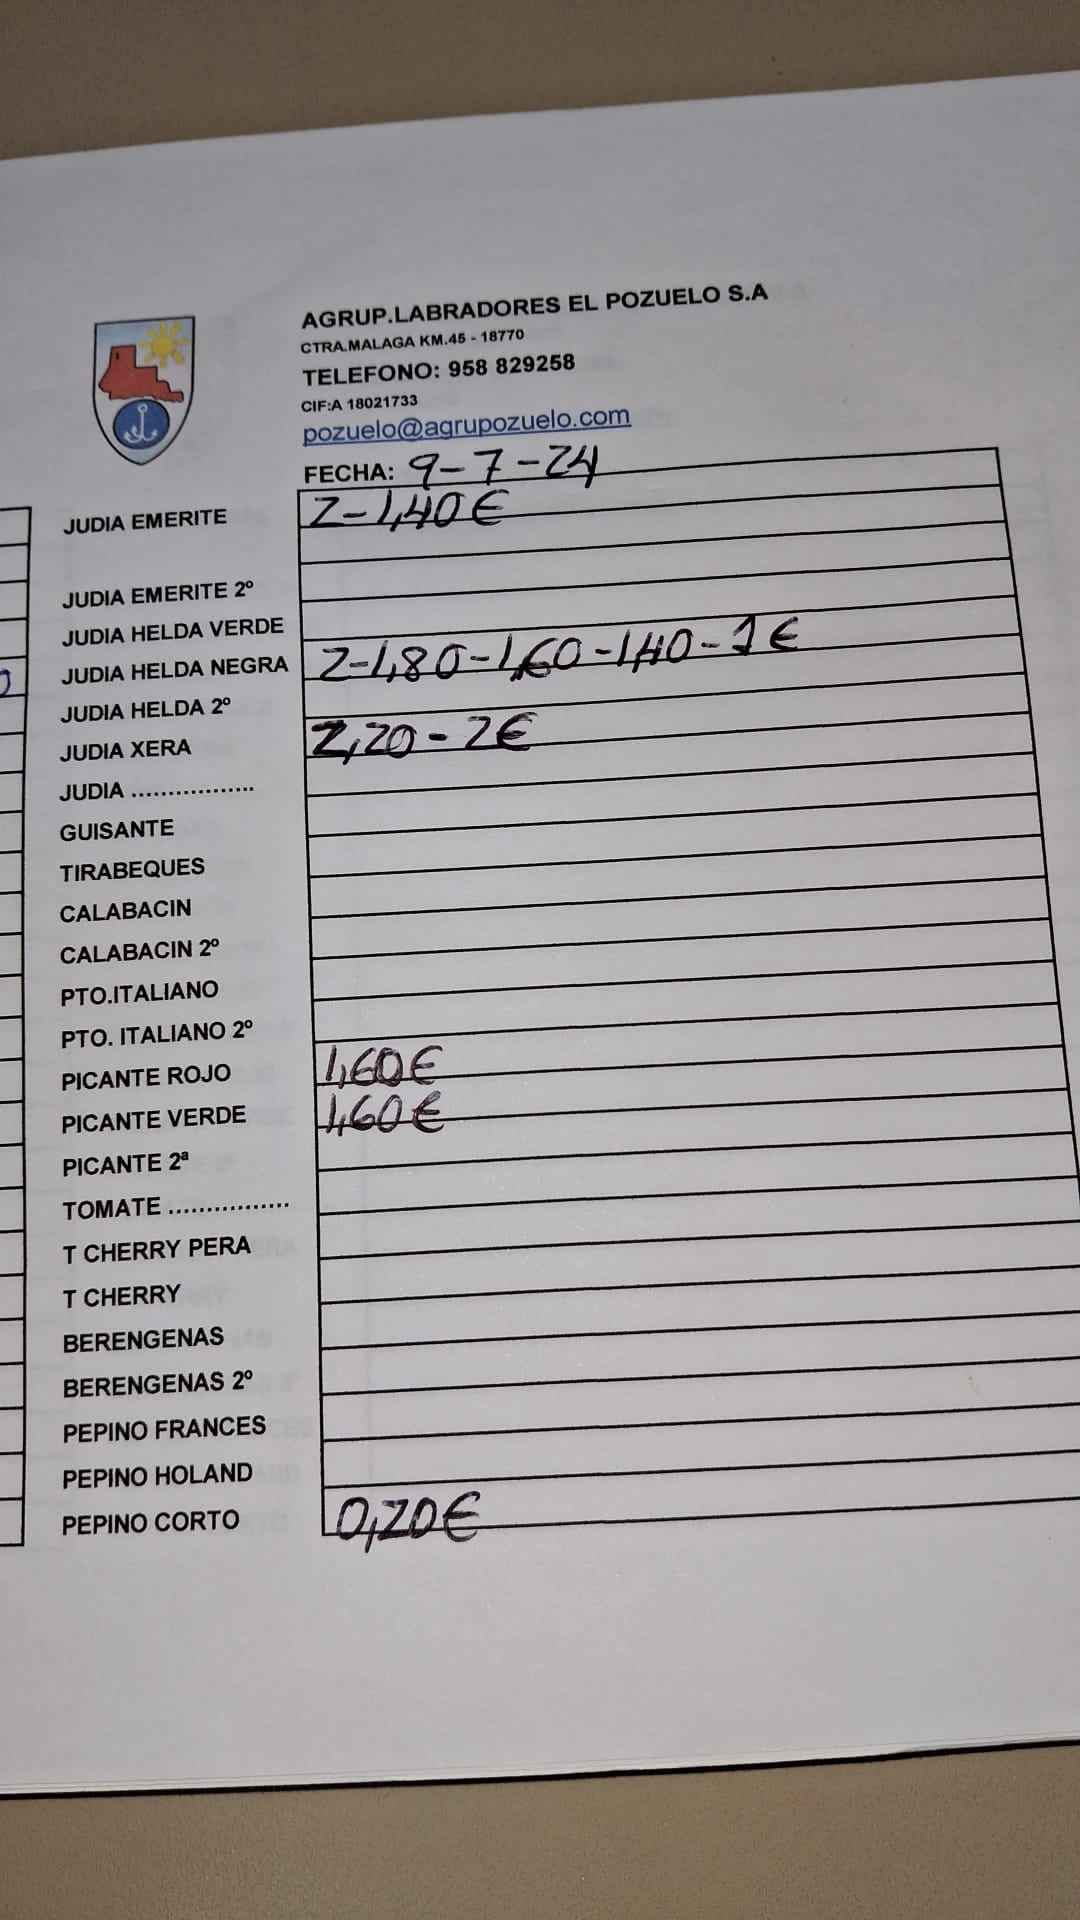 AGRUP.LABRADORES EL POZUELO S.A
CTRA.MALAGA KM.45 - 18770
TELEFONO: 958 829258
CIF:A 18021733
pozuelo@agrupozuelo.com
FECHA: 9-7-24
JUDIA EMERITE 2-1,40€
JUDIA EMERITE 2º
JUDIA HELDA VERDE
JUDIA HELDA NEGRA 2-1,80-1,60-1,40-1€
JUDIA HELDA 2º
JUDIA XERA 2,20-2€
JUDIA .................
GUISANTE
TIRABEQUES
CALABACIN
CALABACIN 2º
PTO.ITALIANO
PTO. ITALIANO 2º
PICANTE ROJO 1,60€
PICANTE VERDE 1,60€
PICANTE 2ª
TOMATE ................
T CHERRY PERA
T CHERRY
BERENGENAS
BERENGENAS 2º
PEPINO FRANCES
PEPINO HOLAND
PEPINO CORTO 0,20€